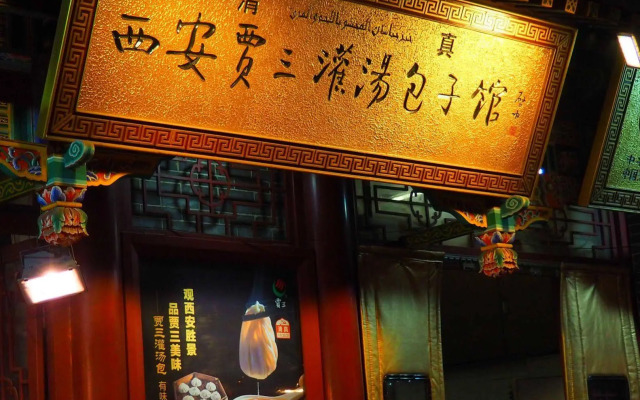 清 真
西安贾三灌汤包子馆
观西安胜景
品贾三美味
贾三灌汤包
贾三